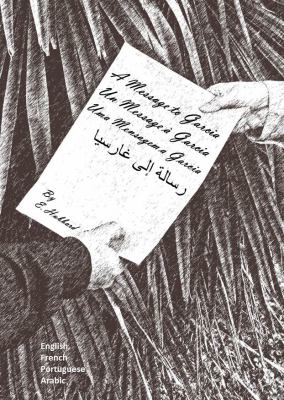 A Message to Garcia
Un Message à Garcia
Uma Mensagem a Garcia
رسالة إلى غارسيا
By
E. Hubbard
English,
French
Portuguese
Arabic